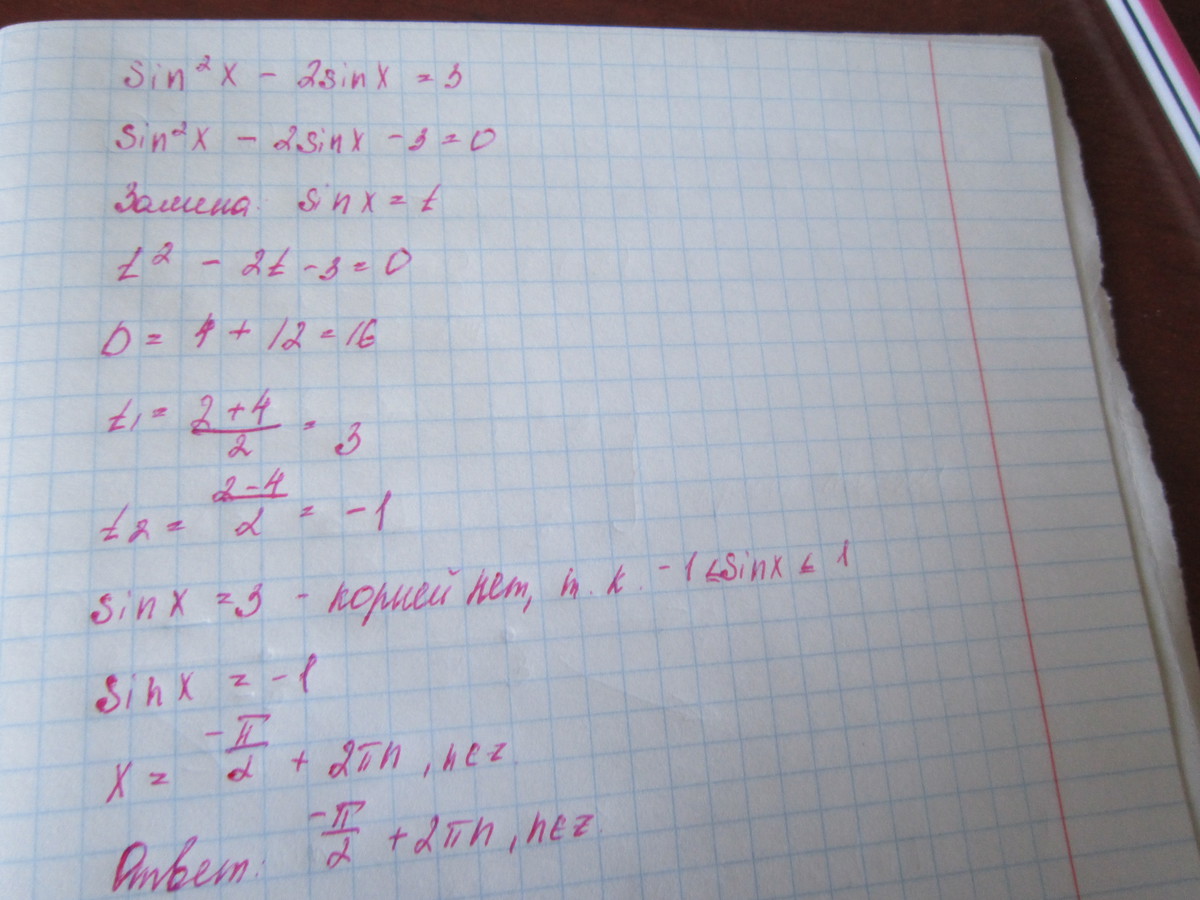 sin²x - 2sinx = 3
sin²x - 2sinx - 3 = 0
Замена: sinx = t
t² - 2t - 3 = 0
D = 4 + 12 = 16
t₁ = (2+4)/2 = 3
t₂ = (2-4)/2 = -1
sinx = 3 - корней нет, т.к. -1 ≤ sinx ≤ 1
sinx = -1
x = -π/2 + 2πn, n∈z
Ответ: -π/2 + 2πn, n∈z.